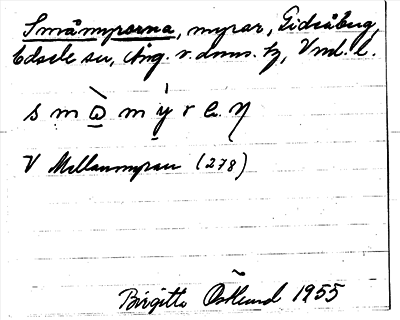 Småmyrorna, myrar, Gidsåberg,
Edsele sn, Ång. v. doms. tg, Vmd. l.
s m ω̲ m y r e. η
V Mellanmyran (278)
Birgitta Östlund 1955